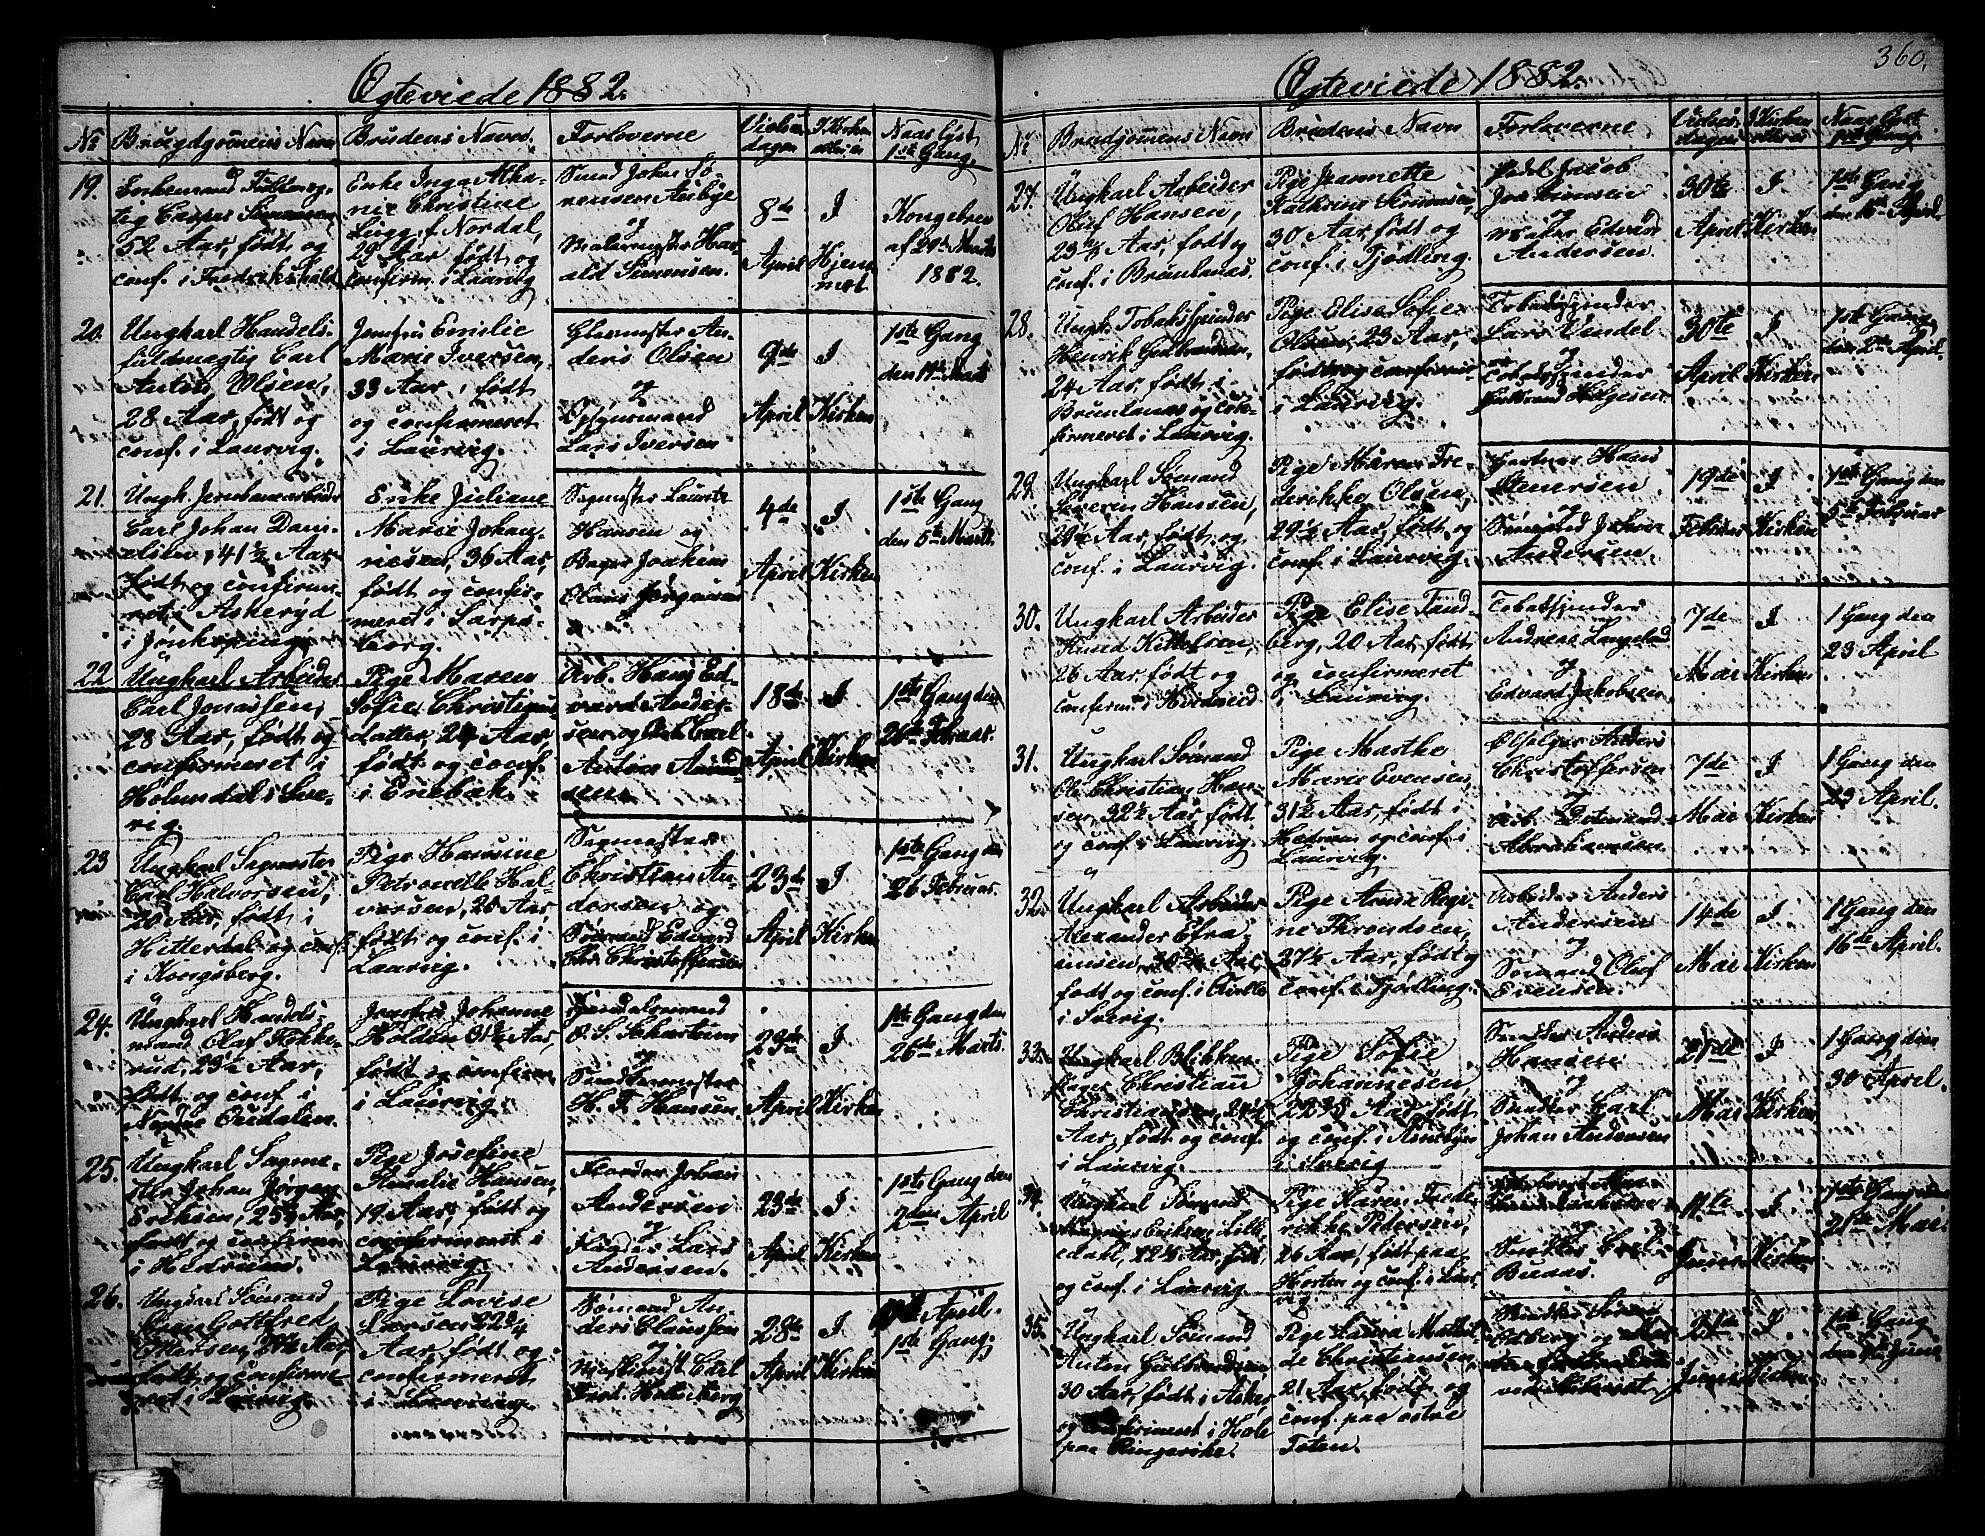 Ægteviede 1882.
No
Brudgommens Navn
Brudens Navn
Forloverne
Vielses dagen
I Kirken eller ei
Naar lyst 1ste Gang
19.
Enkemand
tig Casper Simonsen,
52 Aar, født og
conf. i Fredrikshald
Enke Inga Atha-
nie Christine
Lugg f. Nordal,
29 Aar født og
confirm. i Laurvig
Smed Johs Sø-
rensen Aubye
og
Malermester Har-
ald Simonsen.
8de
April
I
Hjem
met
Kongebrev
af 29de Marts
1882.
20.
Ungkarl Handels-
fuldmægtig Carl
Anton Olsen,
28 Aar, født og
conf. i Laurvig.
Jomfru Emilie
Marie Iversen,
33 Aar, født
og confirmeret
i Laurvig.
Glasmester An-
ders Olsen
og
Opsynsmand
Lars Iversen
9de
April
I
Kirken
1ste Gang
den Marts
21.
Ungk. Jernbanearbeider
Carl Johan Dani-
elsen, 41 1/2 Aar
født og confirme-
ret i Askeryd
i Jønkøping
Enke Juliane
Marie Johan-
nesen, 36 Aar,
født og confir-
meret i Sarps-
borg.
Sagmester Lauritz
Hansen og
Bager Joakim
Claus Jørgensen
4de
April
I
Kirken
1ste Gang
den 5te Marts
22
Ungkarl Arbeider
Carl Jonassen,
28 Aar, født og
confirmeret i
Holmedal i Sve-
rig.
Pige Maren
Sofie Christians-
datter, 24 Aar,
født og conf.
i Enebak.
Arb. Hans Ed-
vard Ander-
sen og Carl
Anton
18de
April
I
Kirken
1ste Gang den
26de Februar.
23
Ungkarl Sagmester
Carl Halvorsen,
20 Aar, født i
Hitterdal og conf.
i Kongsberg.
Pige Hansine
Petronelle Hal-
vorsen, 20 Aar,
født og conf. i
Laurvig.
Sagmester
Christian An-
dersen og
Sømand Edvard
Chr. Christoffersen
23de
April
I
Kirken
1ste Gang den
26 Februar.
24.
Ungkarl Handels-
mand Olaf Fokke-
rud, 29 1/2 Aar,
født og conf i
Nordre Oudalen.
Jomfru Johanne
Holden 31 1/2 Aar,
født og confirm.
i Laurvig.
Handelsmand
O. S. Schartum
og
H. F. Hansen.
23de
April
I
Kirken
1ste Gang den
26de Marts.
25.
Ungkarl Sagme-
ster Johan Jørgen
Eriksen, 25 1/2 Aar,
født og confirm.
i Hedrum.
Pige Josefine
Amalie Hansen,
19 Aar, født og
confirmeret i
Laurvig.
Johan
Andersen
og
Lars
Andersen.
23de
April
I
Kirken
1ste Gang den
2den April
26.
Ungkarl Sømand
Gottfred
født og confirme-
ret i Laurvig.
Pige Lovise
Larsen 22 3/4
Aar født og
confirmeret
i Laurvig.
Sømand An-
ders Claussen
og
Carl
Fred. Holmberg
28de
April
I
Kirken
April.
1ste Gang.
360.
Ægteviede 1882.
No
Brudgommens Navn
Brudens Navn
Forloverne
Vielses dagen
I Kirken eller ei
Naar lyst 1ste Gang
27.
Ungkarl Arbeider
Oluf Hansen,
23 Aar, født og
conf. i Brunlanæs.
Pige Jeannette
Kathrine Simonsen,
30 Aar født og
conf. i Tjødling.
Jacob
og
Edvard
Andersen.
30te
April
I
Kirken
1ste Gang
den April.
28.
Ungk. Tobaksspinder
Henrik Gulbrandsen,
24 Aar, født i
Brunlanæs og con-
firmeret i Laurvig.
Pige Elise Sofie
Olsen, 23 Aar,
født og confirm.
i Laurvig.
Tobaksspinder
Lars Vendel
og
Tobaksspinder
Gulbrand Helgesen
30te
April
I
Kirken
1ste Gang
den 2den April.
29.
Ungkarl Sømand
Severin Hansen,
21 1/2 Aar, født og
conf. i Laurvig.
Pige Maren Fre-
derikke Olsen,
29 1/2 Aar, født og
conf. i Laurvig.
Gartner Hans
Stenersen
og
Sømand Johan
Andersen.
19de
Februar
I
Kirken
1ste Gang den
5te Februar
30.
Ungkarl Arbeider
Knud Kittelsen,
26 Aar, født og
confirm. i Hvideseid
Pige Elise Tand-
berg, 20 Aar født
og confirmeret
i Laurvig.
Tobaksspinder
Andreas Langeland
og
Edvard Jakobsen
7de
Mai
I
Kirken
1 Gang den
23 April
31.
Ungkarl Sømand
Ole Christian Han-
sen, 32 1/2 Aar, født
og conf. i Laurvig.
Pige Marthe
Marie Evensen,
31 1/2 Aar, født i
Hedrum og conf. i
Laurvig.
Ølsælger Anders
Christoffersen
og
Arb.
Abrahamsen
7de
Mai
I
Kirken
1 Gang den
23 April.
32.
Ungkarl Arbeider
Alexander Efra-
imsen, Aar,
født og conf. i
i Sverig.
Pige Anne Regi-
ne Throndsen,
37 1/2 Aar, født og
conf. i Tjødling.
Arbeider Anders
Andersen
og
Sømand Oluf
Evensen.
14de
Mai
I
Kirken
1 Gang den
16de April.
33.
Ungkarl Blikken-
slager Christian
Christiansen,
Aar, født og conf.
i Laurvig.
Pige Sofie
Johannesen
22 Aar, født
og conf. i
i Sverig
Anders
Hansen
og
Snedker Carl
Johan Andersen
21de
Mai
I
Kirken
1 Gang den
30 April.
34.
Ungkarl Sømand
Eriksen
dahl, 22 1/2 Aar, født
og conf. i Laurvig
Pige Karen Frede-
rikke Pedersen,
26 Aar, født paa
Horten og conf. i Laur-
vig
Snedker
Buaas.
11te
Juni
I
Kirken
1ste Gang den
21de Mai
35.
Ungkarl Sømand
Anton Gulbrandsen,
30 Aar, født i Asker
og confirmeret i Hole
paa Ringerike.
Pige Laura Mathil-
de Christiansen,
21 Aar, født og
conf. paa østre
Toten.
Juni
I
Kirken
1ste Gang
den Juni